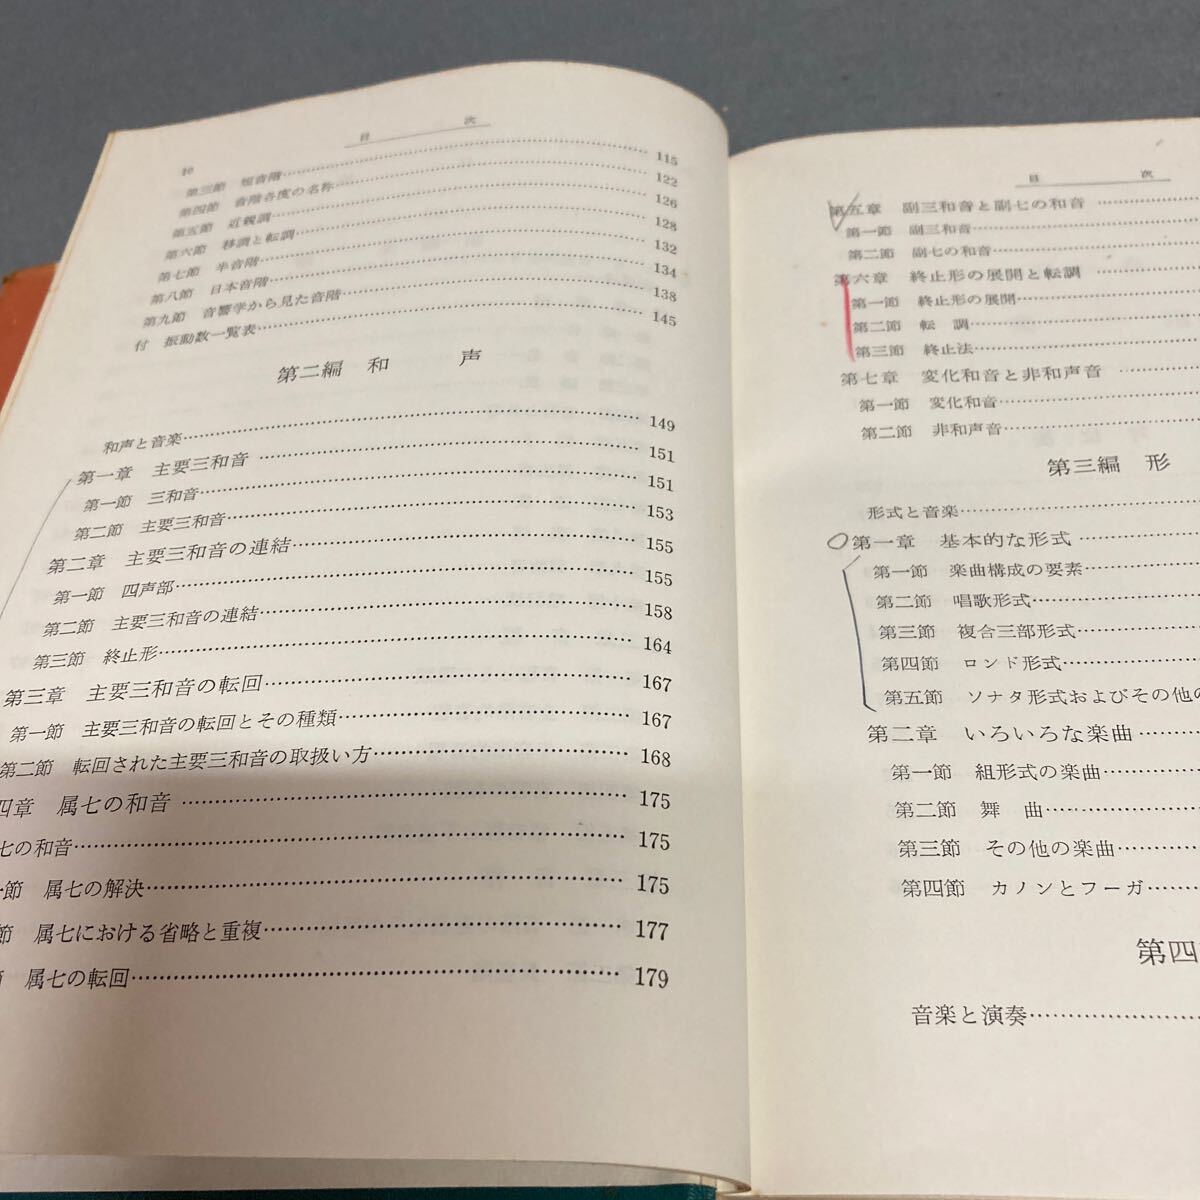 目　次
10
第三節　短音階……115
第四節　音階各度の名称……122
第五節　近親調……126
第六節　移調と転調……128
第七節　半音階……132
第八節　日本音階……134
第九節　音響学から見た音階……138
付　振動数一覧表……145
第二編　和　声
和声と音楽……149
第一章　主要三和音……151
第一節　三和音……151
第二節　主要三和音……153
第二章　主要三和音の連結……155
第一節　四声部……155
第二節　主要三和音の連結……158
第三節　終止形……164
第三章　主要三和音の転回……167
第一節　主要三和音の転回とその種類……167
第二節　転回された主要三和音の取扱い方……168
四章　属七の和音……175
七の和音……175
節　属七の解決……175
節　属七における省略と重複……177
属七の転回……179
目　次
第五章　副三和音と副七の和音
第一節　副三和音……
第二節　副七の和音……
第六章　終止形の展開と転調……
第一節　終止形の展開……
第二節　転　調……
第三節　終止法……
第七章　変化和音と非和声音……
第一節　変化和音……
第二節　非和声音……
第三編　形
形式と音楽……
第一章　基本的な形式……
第一節　楽曲構成の要素……
第二節　唱歌形式……
第三節　複合三部形式……
第四節　ロンド形式……
第五節　ソナタ形式およびその他の
第二章　いろいろな楽曲……
第一節　組形式の楽曲……
第二節　舞　曲……
第三節　その他の楽曲……
第四節　カノンとフーガ……
第四
音楽と演奏……